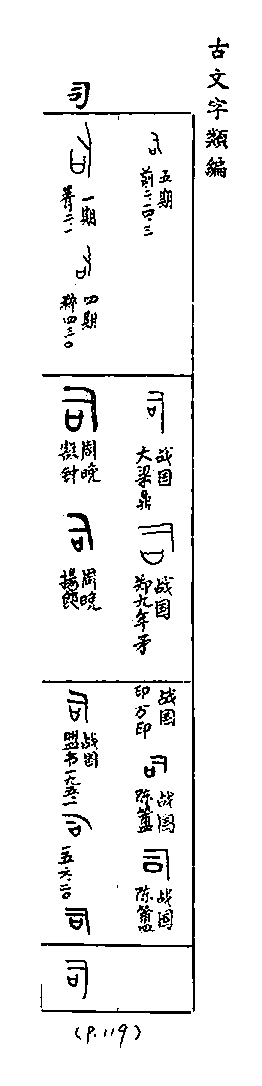 古文字類編
司
一期
菁二·一
四期
粹四三〇
五期
前二·一四·三
周晚
周晚
揚簋
战国
大梁鼎
战国
郑九年矛
战国
盟书一九五·一
一五六·二〇
战国
印方印
战国
陈簠
战国
陈簠
司
(P.119)